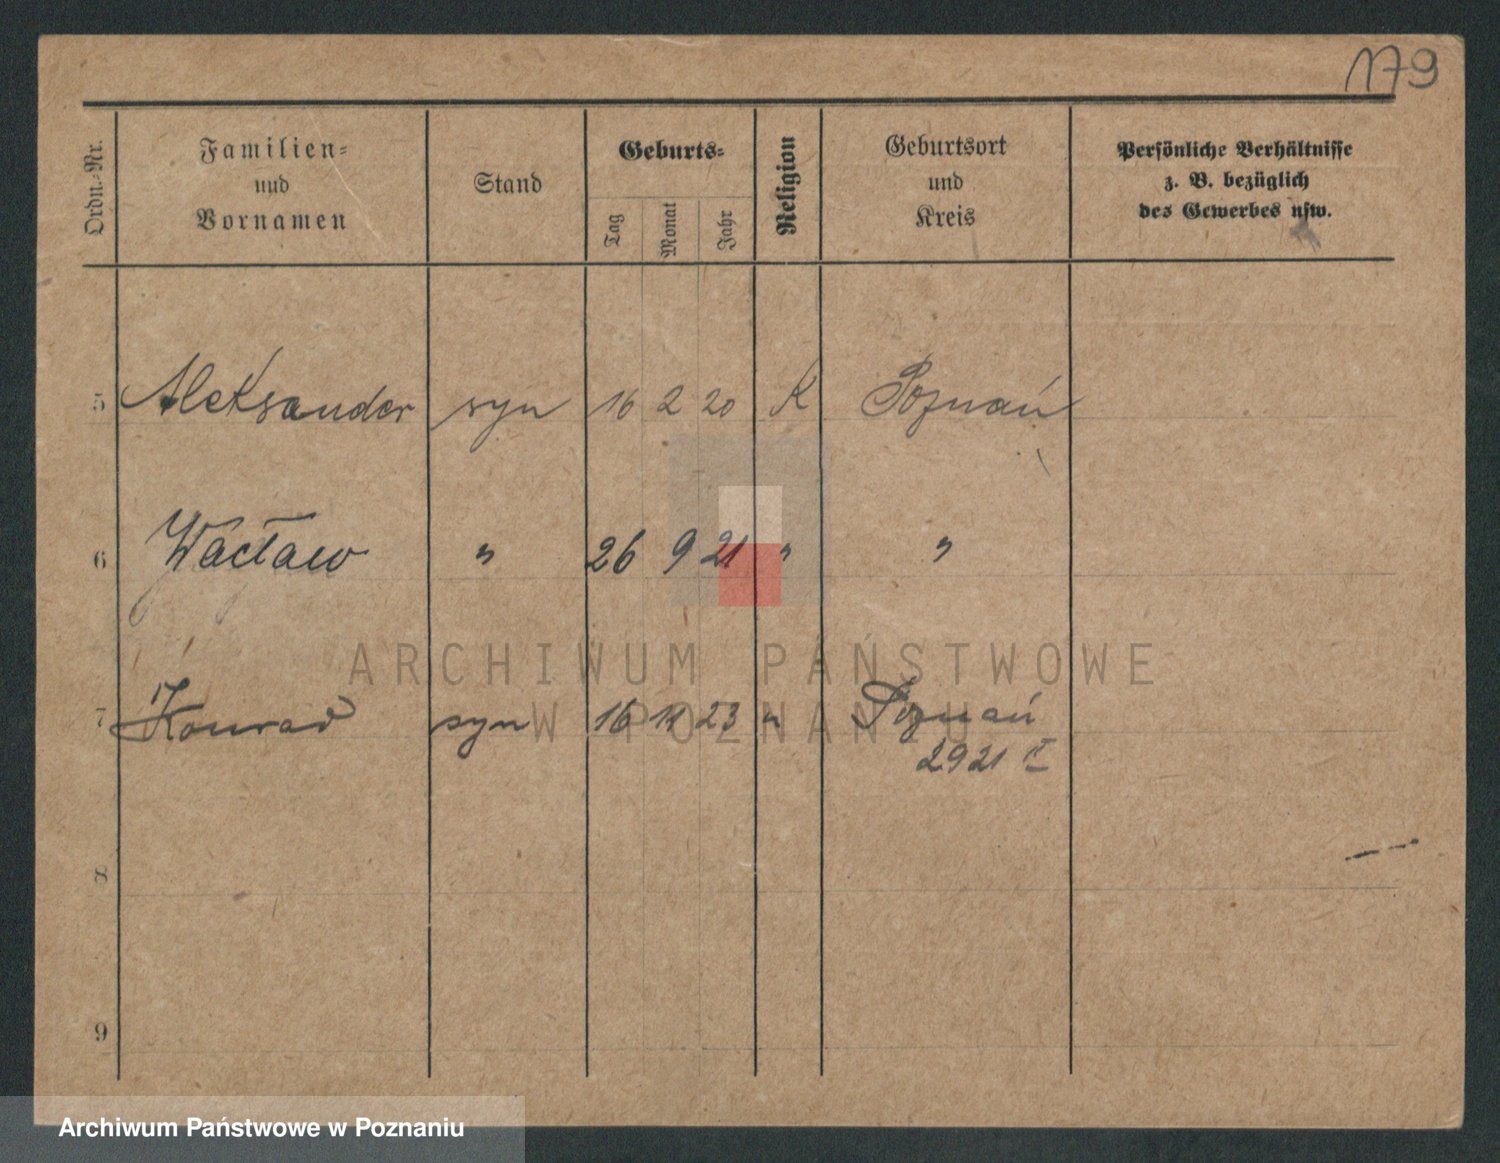 179
Ordn.-Nr.
Familien-
und
Vornamen
Stand
Geburts-
Tag
Monat
Jahr
Religion
Geburtsort
und
Kreis
Persönliche Verhältnisse
z. B. bezüglich
des Gewerbes usw.
5 Aleksander syn 16 2 20 K Poznań
6 Wacław " 26 9 21 " "
7 Konrad syn 16 11 23 " Poznań
2921 I
8
9
ARCHIWUM PAŃSTWOWE
W POZNANIU
Archiwum Państwowe w Poznaniu